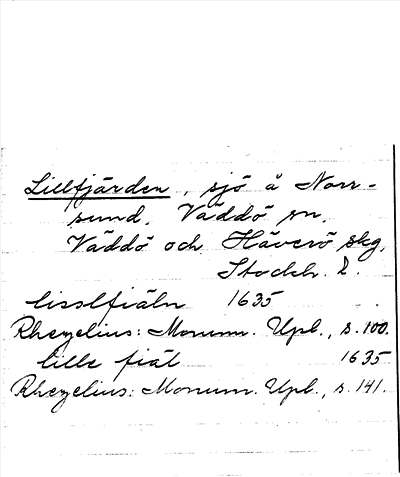 Lillfjärden, sjö å Norr-
sund, Väddö sn,
Väddö och Häverö skg,
Stockh. l.
lisslfiäln 1635
Rhezelius: Monum. Upl., s. 100.
lille fiäl 1635
Rhezelius: Monum. Upl., s. 141.